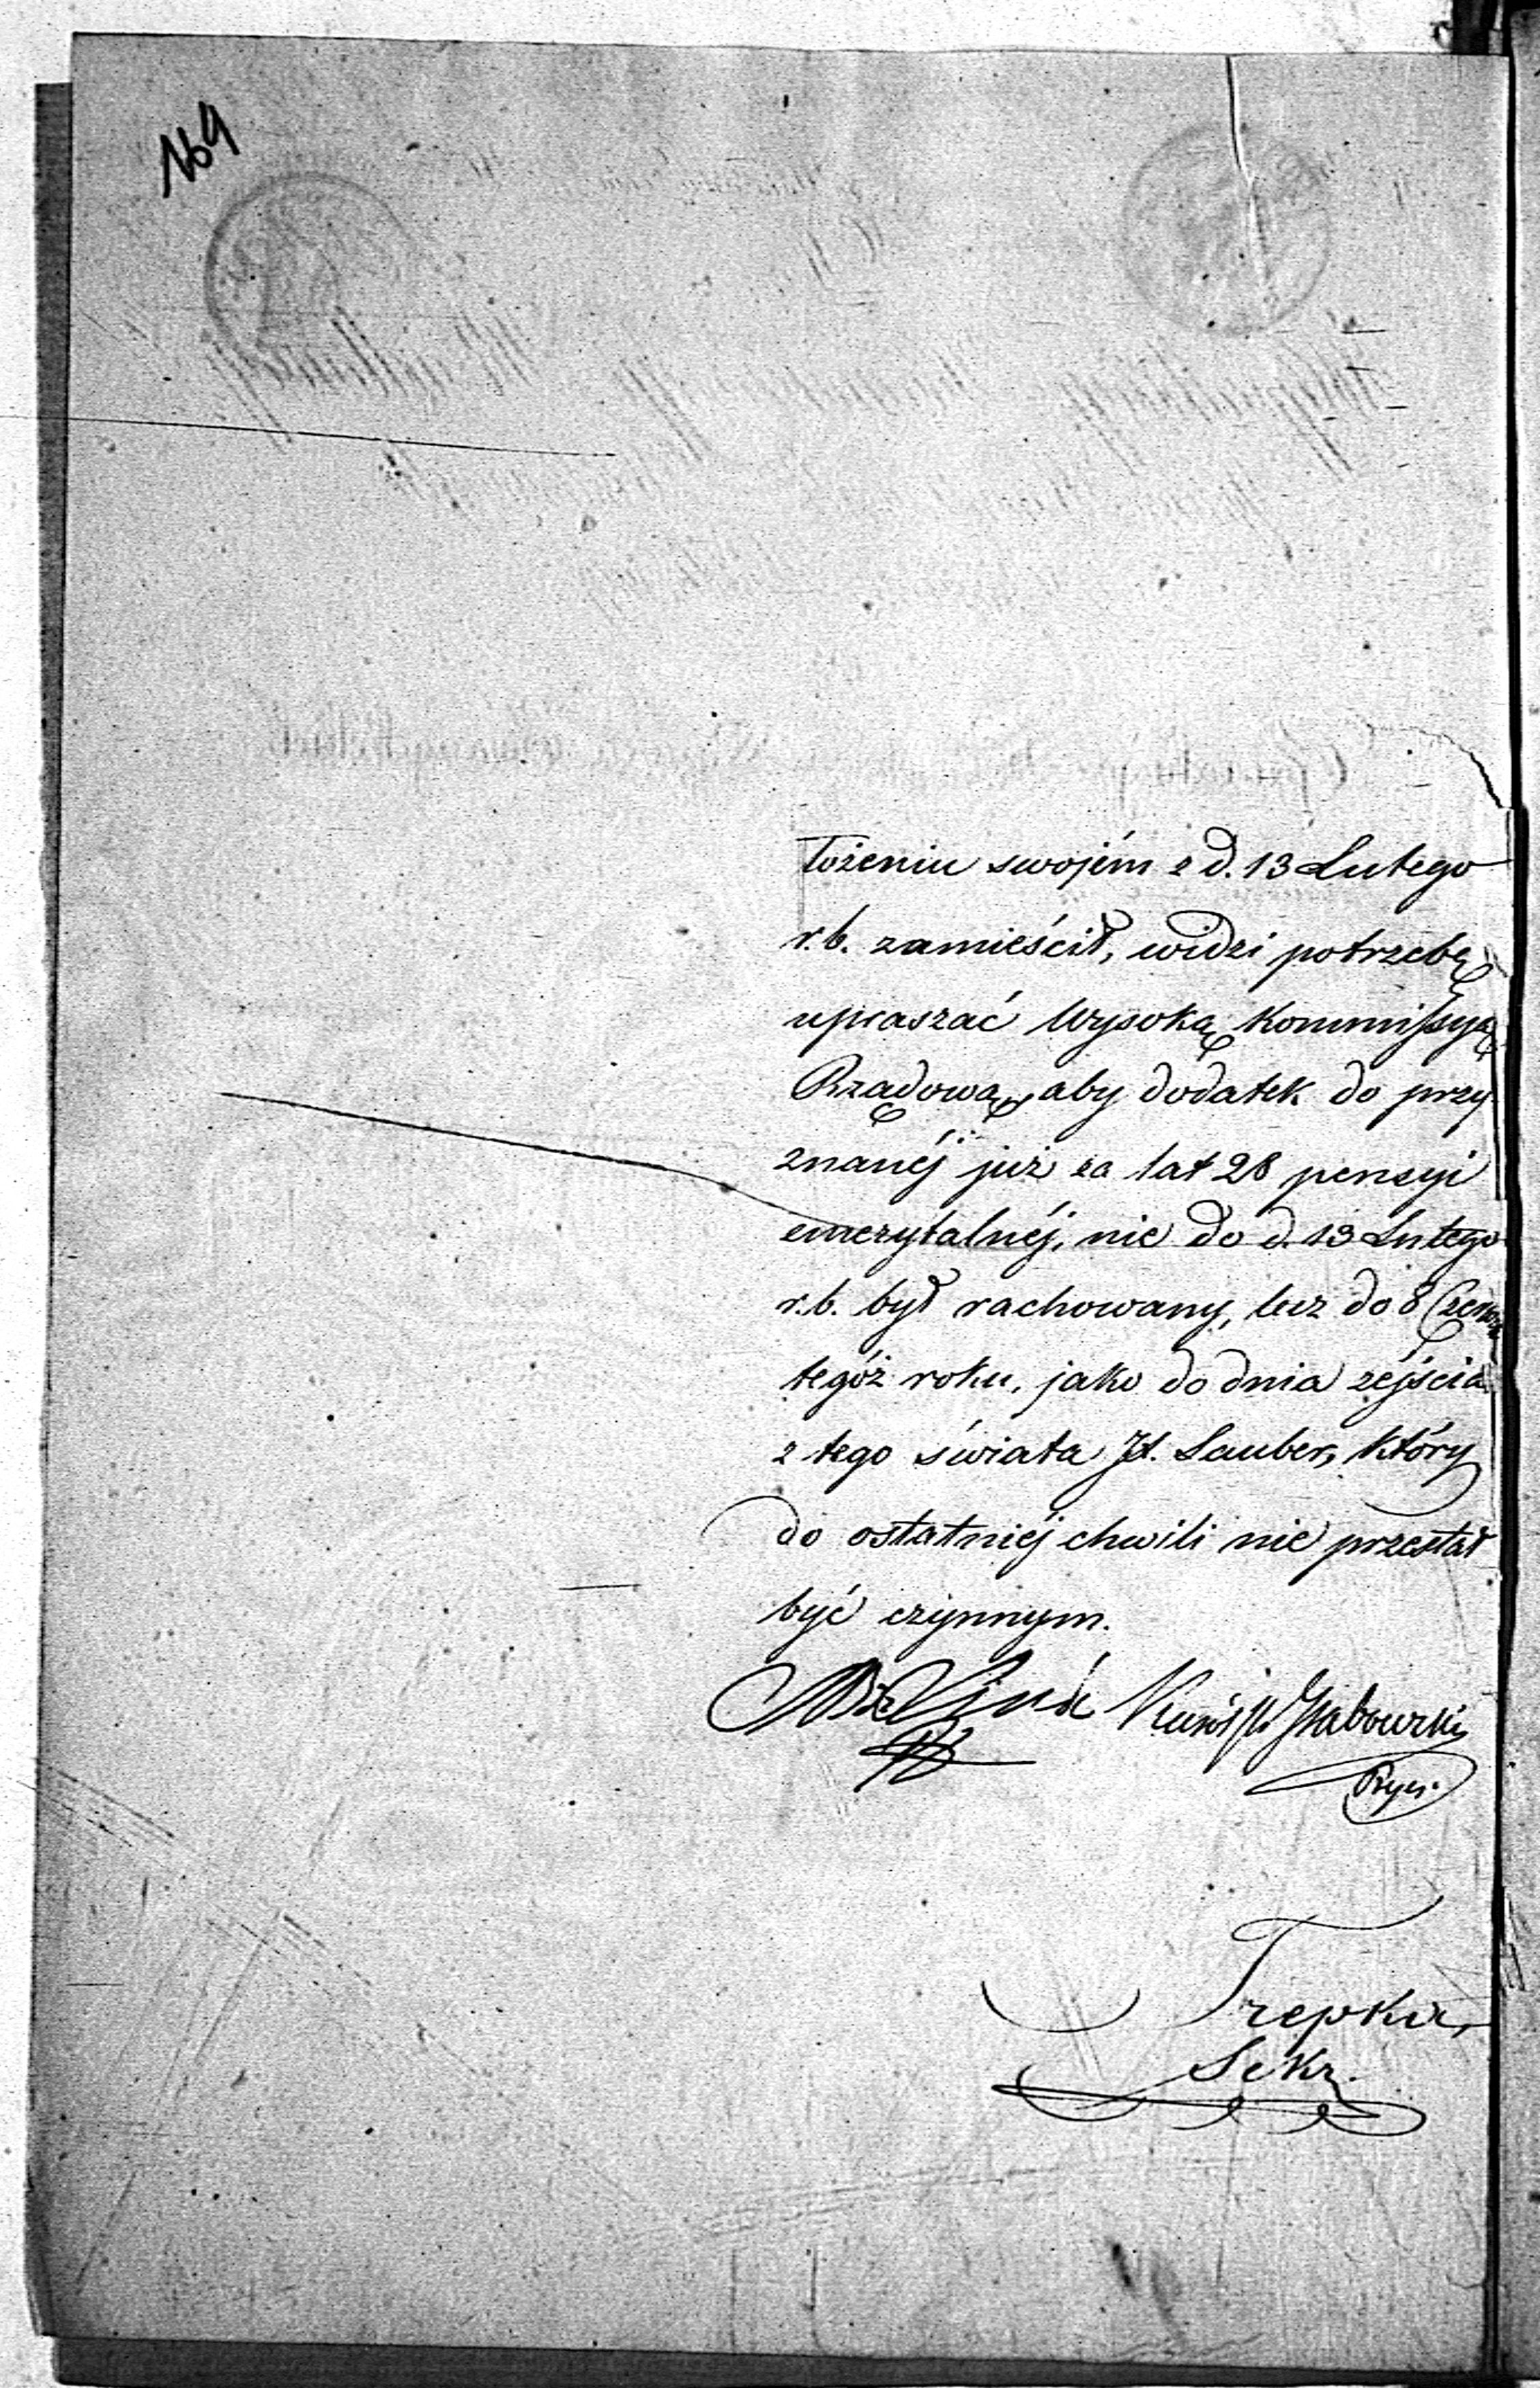 169
łożeniu swojém z d. 13 Lutego
r.b. zamieścił, widzi potrzebę
upraszać Wysoką Kommissyą
Rządową, aby dodatek do przy
znanéj już za lat 28 pensyi
emerytalnéj, nie do d. 13 Lutego
r.b. był rachowany, lecz do 8 Czerw
tegóż roku, jako do dnia zejścia
z tego świata Jł. Lauber, który
do ostatniéj chwili nie przestał
być czynnym.
Linde Grabowski
Trepka,
Sekr.